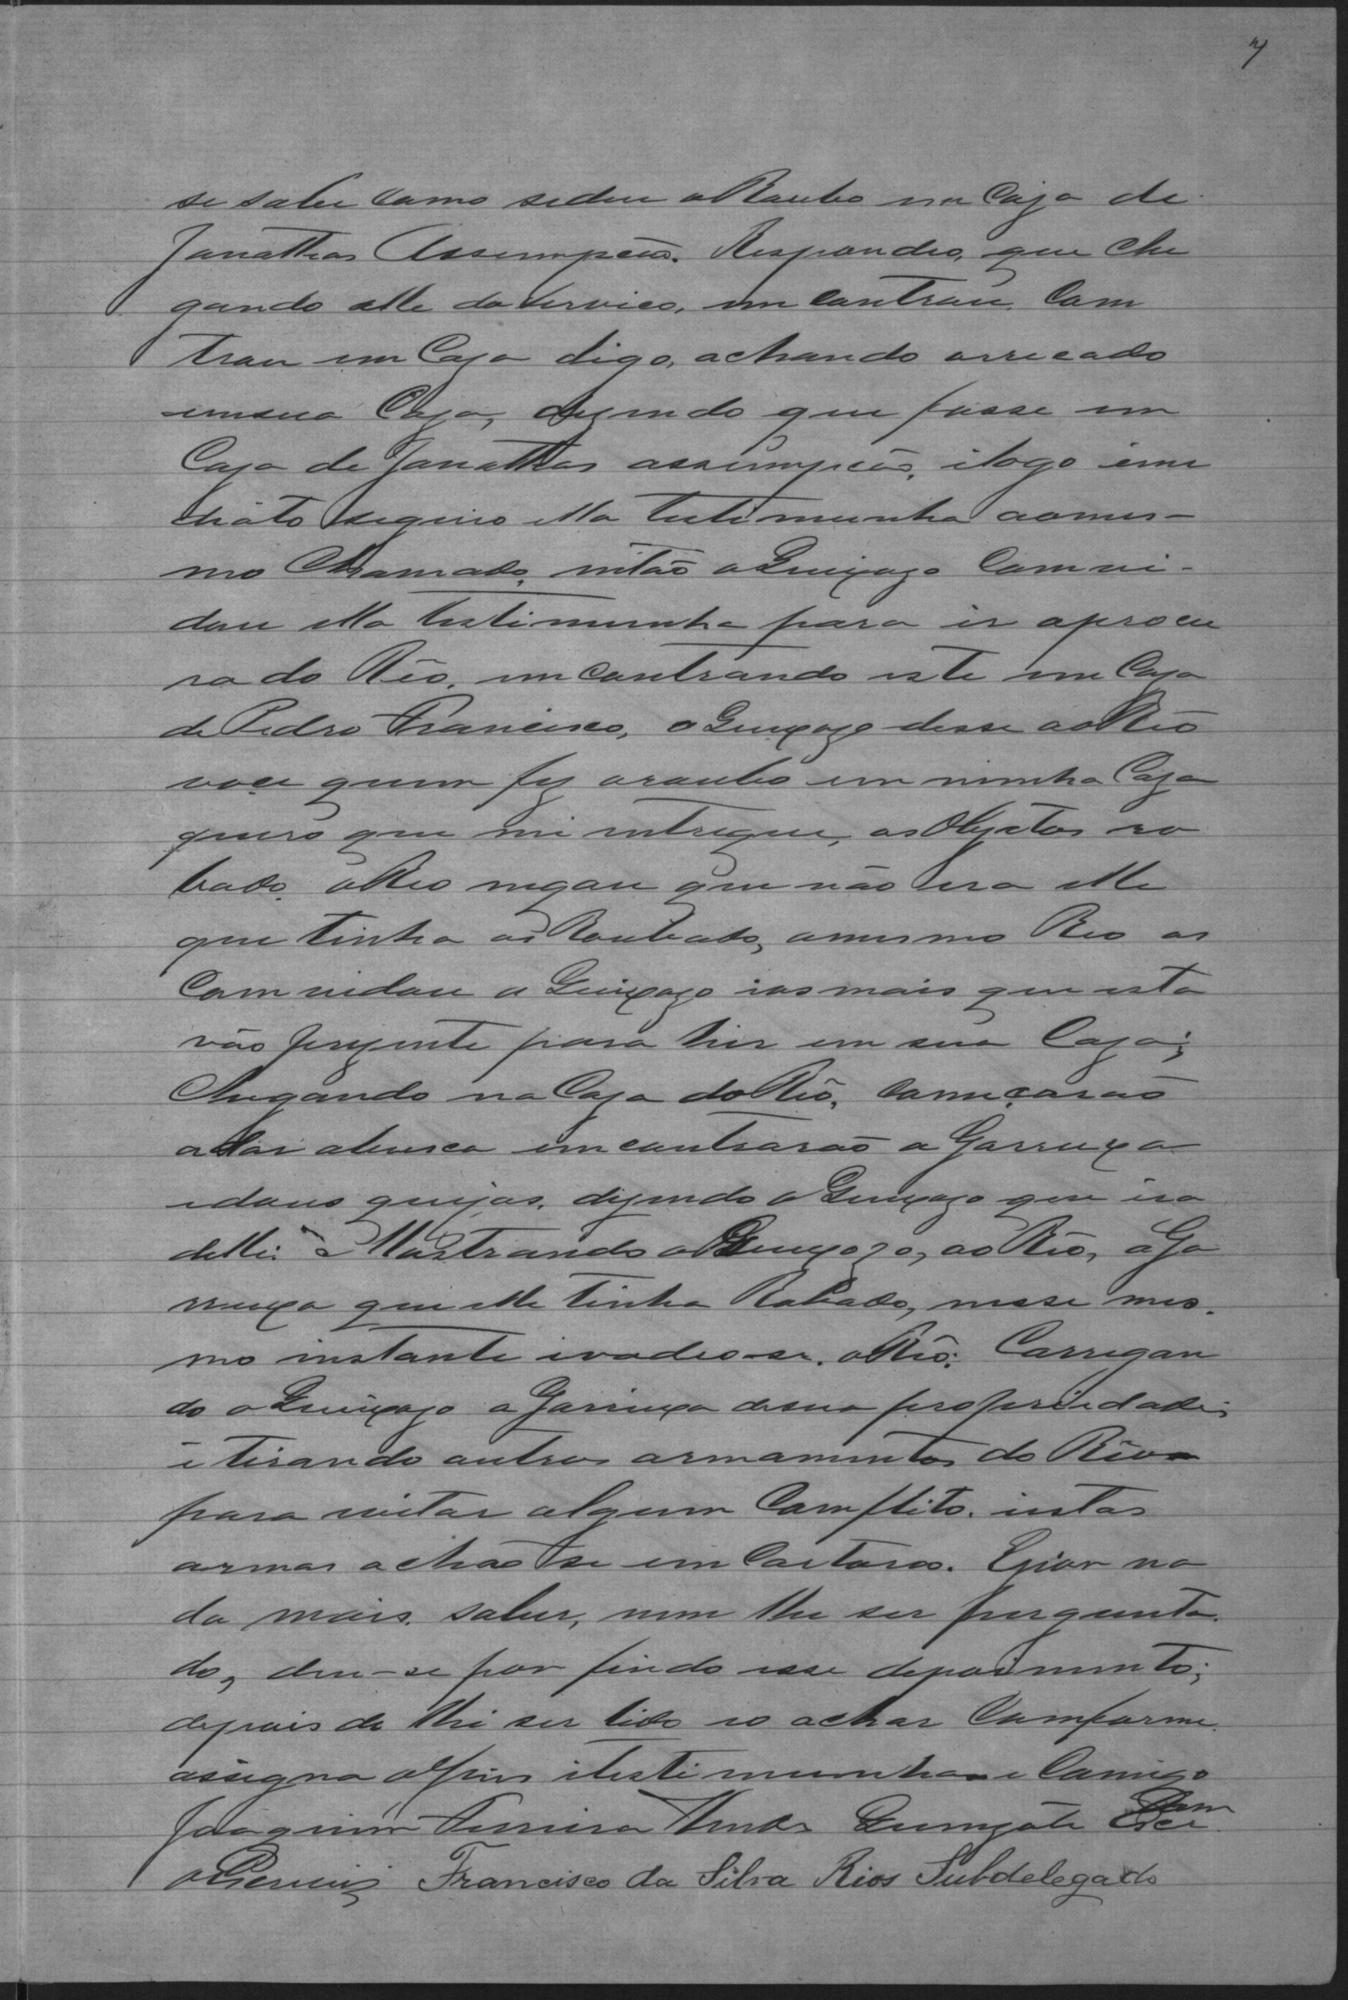 7
se saber como sedeu o Raubo em Caza de
Janathas Assumpção. Respondeo, que che
gando elle do serviço, em contrau, Com
trau em Caza digo, achando orrecado
em sua Caza, dizendo que fosse em
Caza de Janathas assumpção, ilogo ime
diáto seguiu ella testimunha aomes-
mo Chamado, então o Guipazo Comvi-
dou ella testimunha para ir aprocu
ra do Réo, em contrando este em Caza
de Pedro Francisco, o Guipazo disse ao Réo
voce quem fez oraubo em minha Caza
quero que mi entregue, os Objetos ro
bado, o Reo negau que não era elle
que tinha os Raubado, o mesmo Reo os
Comvidau a Guipazo ios mais que esta
vão prezente para hir em sua Caza;
Chegando na Caza do Réo, Começarão
a dar abusca em contrarão a Garruxa
edous queijos, dizendo o Guipazo que era
delle. e Mostrando o Guipazo, ao Réo, a Ga
rruxa que elle tinha Robado, nesse mes-
mo instante evadeo-se. o Réo: Carregan
do o Guipazo a Garruxa desua propriedade;
e tirando autros armamentos do Réo
para evitar algum Comflito. estas
armas achão se em Cartorio. E por na
da mais saber, nem lhe ser pergunta-
do, deu-se por findo esse depoimento;
depois de lhe ser lido eo achar Comforme
assigna o Juis itestimunha e Comigo
Joaquim Ferreira Escr
Francisco da Silva Rios Subdelegado